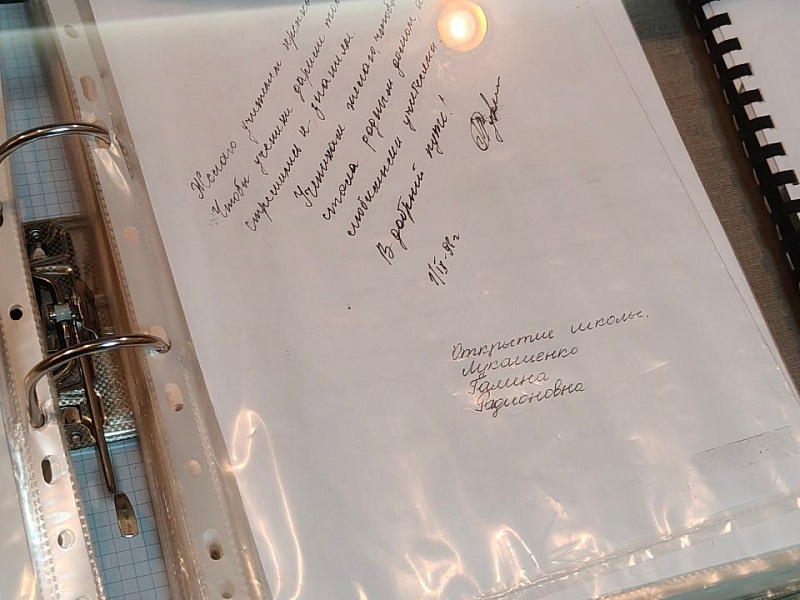 Желаю учителям
Чтобы ученики дарили
стремились к знаниям.
Ученикам желаю, чтобы
стала родным домом, а
любимыми учителями.
В добрый путь!
1/IX-98г
Открытие школы.
Лукашенко
Галина
Радионовна